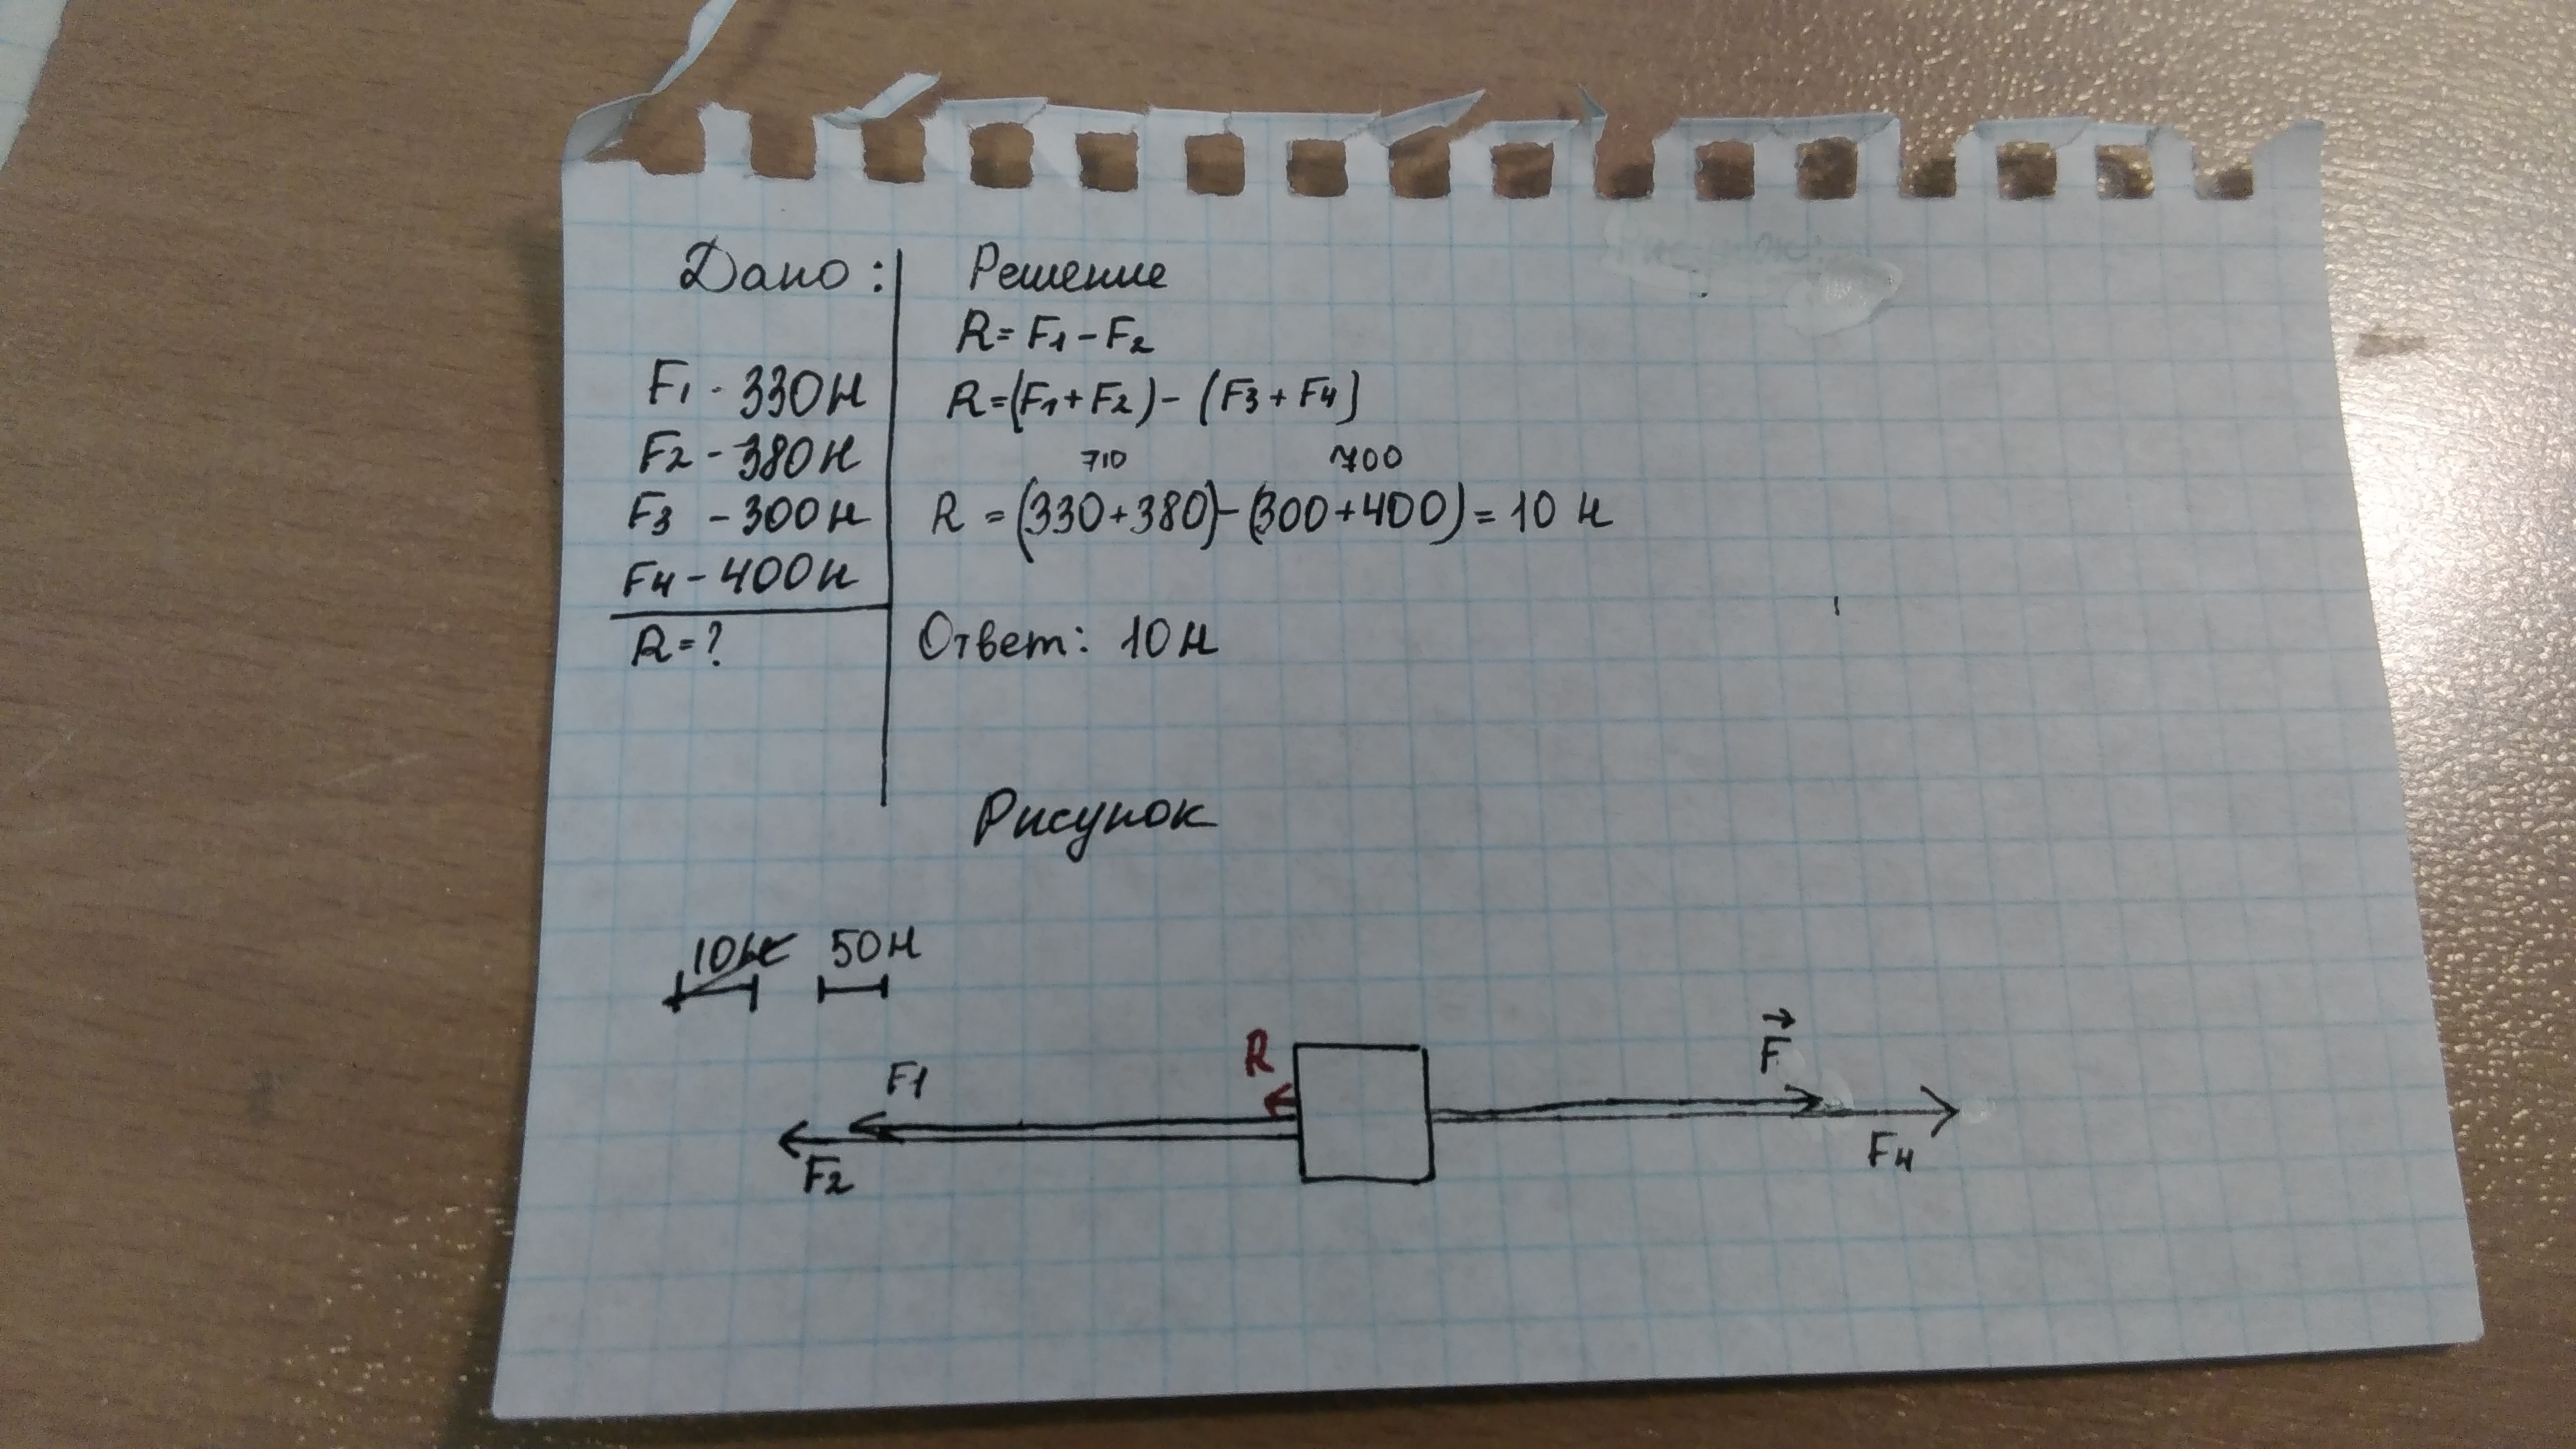 Дано:
F1 - 330Н
F2 - 380Н
F3 - 300Н
F4 - 400Н
R = ?
Решение
R = F1 - F2
R = (F1 + F2) - (F3 + F4)
710 700
R = (330 + 380) - (300 + 400) = 10 Н
Ответ: 10 Н
Рисунок
10Н 50Н
R
F
F1
F2
F4